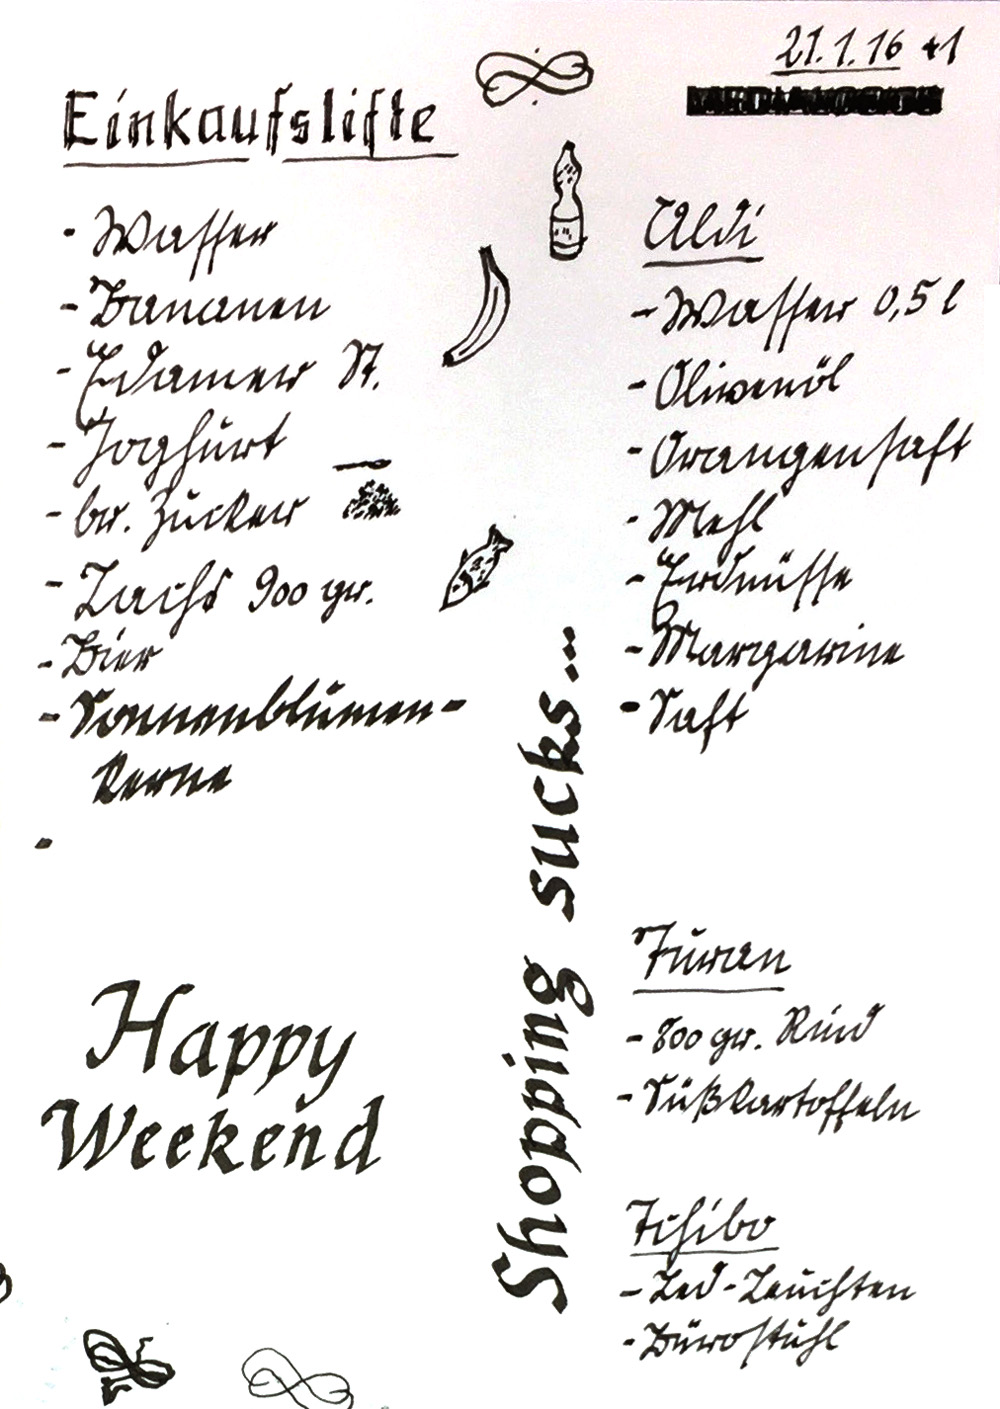 21.1.16 +1
Einkaufsliſte
- Waſſer
- Bananen
- Edamer St.
- Joghurt
- br. Zucker
- Lachs 900 gr.
- Bier
- Sonnenblumen-
kerne
-
Happy
Weekend
Shopping sucks...
Aldi
- Waſſer 0,5 l
- Olivenöl
- Orangenſaft
- Mehl
- Erdnüſſe
- Margarine
- Saft
Turan
- 800 gr. Rind
- Süßkartoffeln
Tchibo
- Led-Leuchten
- Büroſtuhl